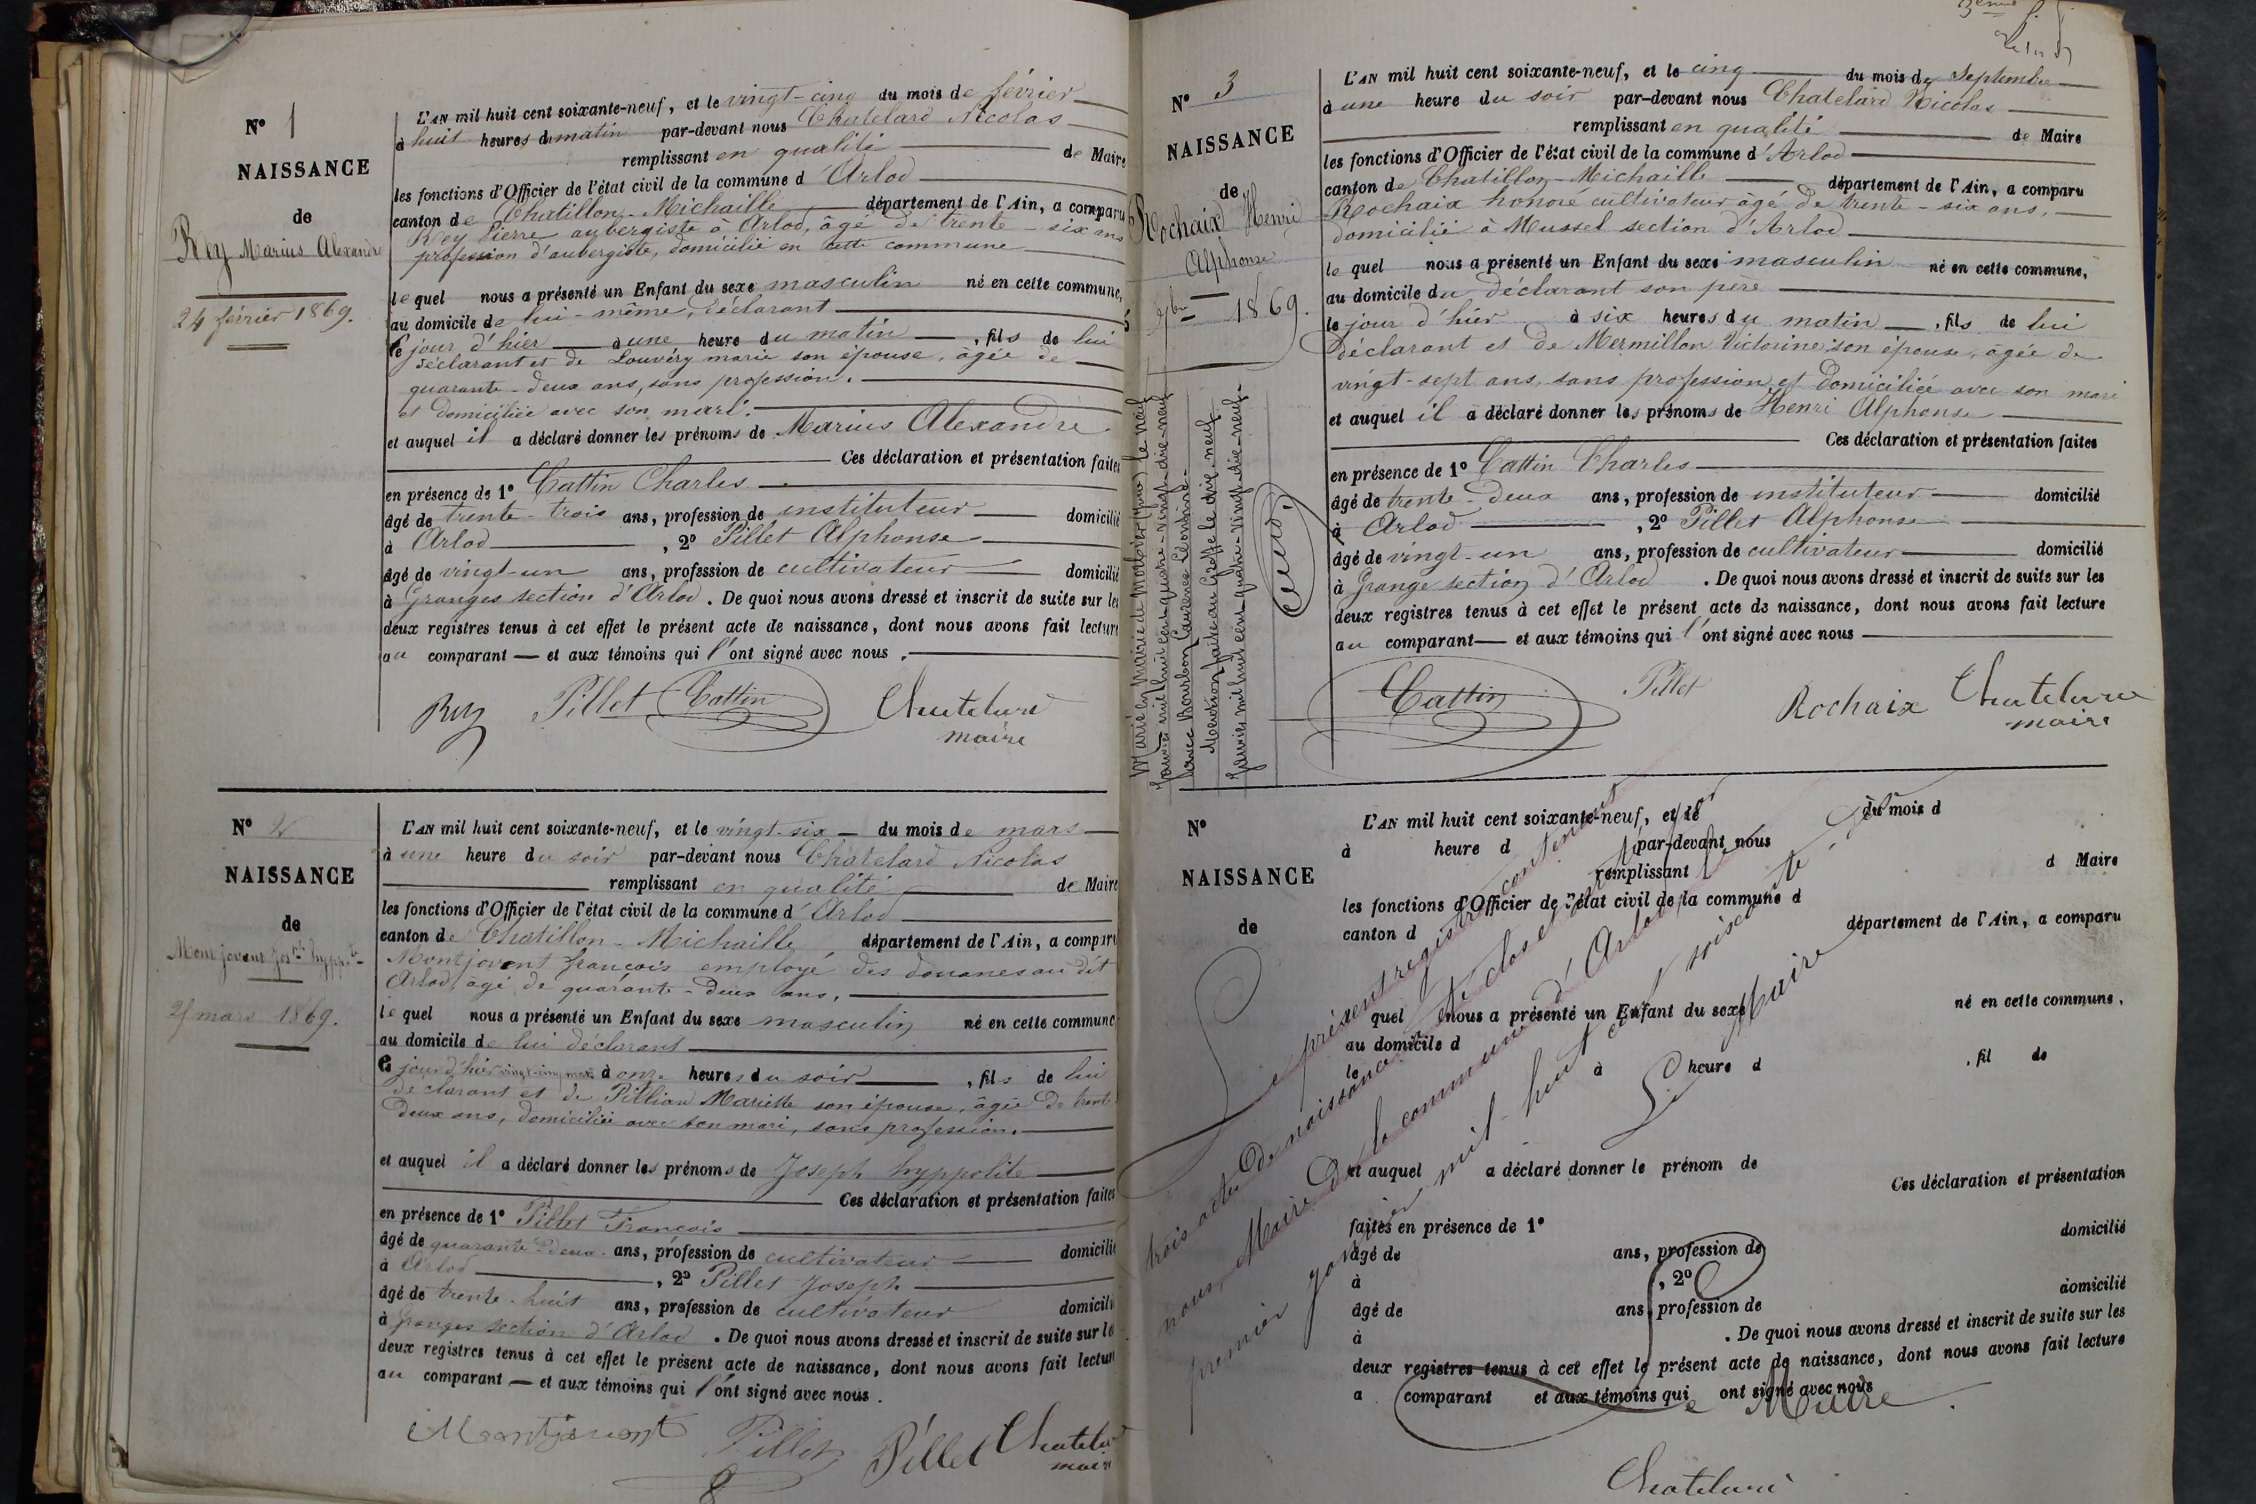 N° 1
NAISSANCE
de
Rey Marius Alexandre
24 février 1869.
L'AN mil huit cent soixante-neuf, et le vingt-cinq du mois de février
à huit heures du matin par-devant nous Chatelard Nicolas
remplissant en qualité de Maire
les fonctions d'Officier de l'état civil de la commune d'Arlod
canton de Chatillon-Michaille département de l'Ain, a comparu
Rey Pierre aubergiste à Arlod, âgé de trente-six ans
profession d'aubergiste, domicilié en cette commune
le quel nous a présenté un Enfant du sexe masculin né en cette commune,
au domicile de lui-même, déclarant
le jour d'hier à une heure du matin, fils de lui
déclarant et de Louvéry marie son épouse, âgée de
quarante-deux ans, sans profession.
et domiciliée avec son mari.
et auquel il a déclaré donner les prénoms de Marius Alexandre
Ces déclaration et présentation faites
en présence de 1° Cattin Charles
âgé de trente-trois ans, profession de instituteur domicilié
à Arlod, 2° Pillet Alphonse
âgé de vingt-un ans, profession de cultivateur domicilié
à Granges section d'Arlod. De quoi nous avons dressé et inscrit de suite sur les
deux registres tenus à cet effet le présent acte de naissance, dont nous avons fait lecture
au comparant — et aux témoins qui l'ont signé avec nous.
Rey Pillet Cattin Chatelard
maire
N° 2
NAISSANCE
de
Montjovent Jos^h hypp^te
25 mars 1869.
L'AN mil huit cent soixante-neuf, et le vingt-six du mois de mars
à une heure du soir par-devant nous Chatelard Nicolas
remplissant en qualité de Maire
les fonctions d'Officier de l'état civil de la commune d'Arlod
canton de Chatillon-Michaille département de l'Ain, a comparu
Montjovent françois employé des douanes au dit
Arlod, âgé de quarante-deux ans,
le quel nous a présenté un Enfant du sexe masculin né en cette commune
au domicile de lui déclarant
le jour d'hier vingt-cinq mars à onze heures du soir, fils de lui
déclarant et de Pillian Mariette son épouse, âgée de trente
deux ans, domiciliée avec son mari, sans profession.
et auquel il a déclaré donner les prénoms de Joseph hyppolite
Ces déclaration et présentation faites
en présence de 1° Pillet François
âgé de quarante-deux ans, profession de cultivateur domicilié
à Arlod, 2° Pillet Joseph
âgé de trente-huit ans, profession de cultivateur domicilié
à Granges section d'Arlod. De quoi nous avons dressé et inscrit de suite sur les
deux registres tenus à cet effet le présent acte de naissance, dont nous avons fait lecture
au comparant — et aux témoins qui l'ont signé avec nous.
Montjovent Pillet Pillet Chatelard
maire
N° 3
NAISSANCE
de
Rochaix Henri
Alphonse
7bre 1869.
Marié en Mairie de
janvier mil huit cent quatre-vingt-dix-neuf
avec Bourbon Laurence Léonine.
Mention faite au Greffe le dix-neuf
Janvier mil huit cent quatre-vingt-dix-neuf.
L'AN mil huit cent soixante-neuf, et le cinq du mois de Septembre
à une heure du soir par-devant nous Chatelard Nicolas
remplissant en qualité de Maire
les fonctions d'Officier de l'état civil de la commune d'Arlod
canton de Chatillon-Michaille département de l'Ain, a comparu
Rochaix honoré cultivateur âgé de trente-six ans,
domicilié à Mussel section d'Arlod
le quel nous a présenté un Enfant du sexe masculin né en cette commune,
au domicile du déclarant son père
le jour d'hier à six heures du matin, fils de lui
déclarant et de Mermillon Victorine son épouse, âgée de
vingt-sept ans, sans profession et domiciliée avec son mari
et auquel il a déclaré donner les prénoms de Henri Alphonse
Ces déclaration et présentation faites
en présence de 1° Cattin Charles
âgé de trente-deux ans, profession de instituteur domicilié
à Arlod, 2° Pillet Alphonse
âgé de vingt-un ans, profession de cultivateur domicilié
à Grange section d'Arlod. De quoi nous avons dressé et inscrit de suite sur les
deux registres tenus à cet effet le présent acte de naissance, dont nous avons fait lecture
au comparant — et aux témoins qui l'ont signé avec nous
Cattin Pillet Rochaix Chatelard
maire
N°
NAISSANCE
de
L'AN mil huit cent soixante-neuf, et le du mois d
à heure d par-devant nous
remplissant d Maire
les fonctions d'Officier de l'état civil de la commune d
canton d département de l'Ain, a comparu
quel nous a présenté un Enfant du sexe né en cette commune,
au domicile d
le à heure d, fil de
et auquel a déclaré donner le prénom de
Ces déclaration et présentation
faites en présence de 1° domicilié
âgé de ans, profession de
à, 2°
âgé de ans, profession de domicilié
à. De quoi nous avons dressé et inscrit de suite sur les
deux registres tenus à cet effet le présent acte de naissance, dont nous avons fait lecture
a comparant et aux témoins qui ont signé avec nous
Le présent registre contenant
trois actes de naissance a été clos et arrêté par
nous, Maire de la commune d'Arlod, le
premier janvier mil huit cent soixante-dix
Le Maire
Le Maire.
Chatelard